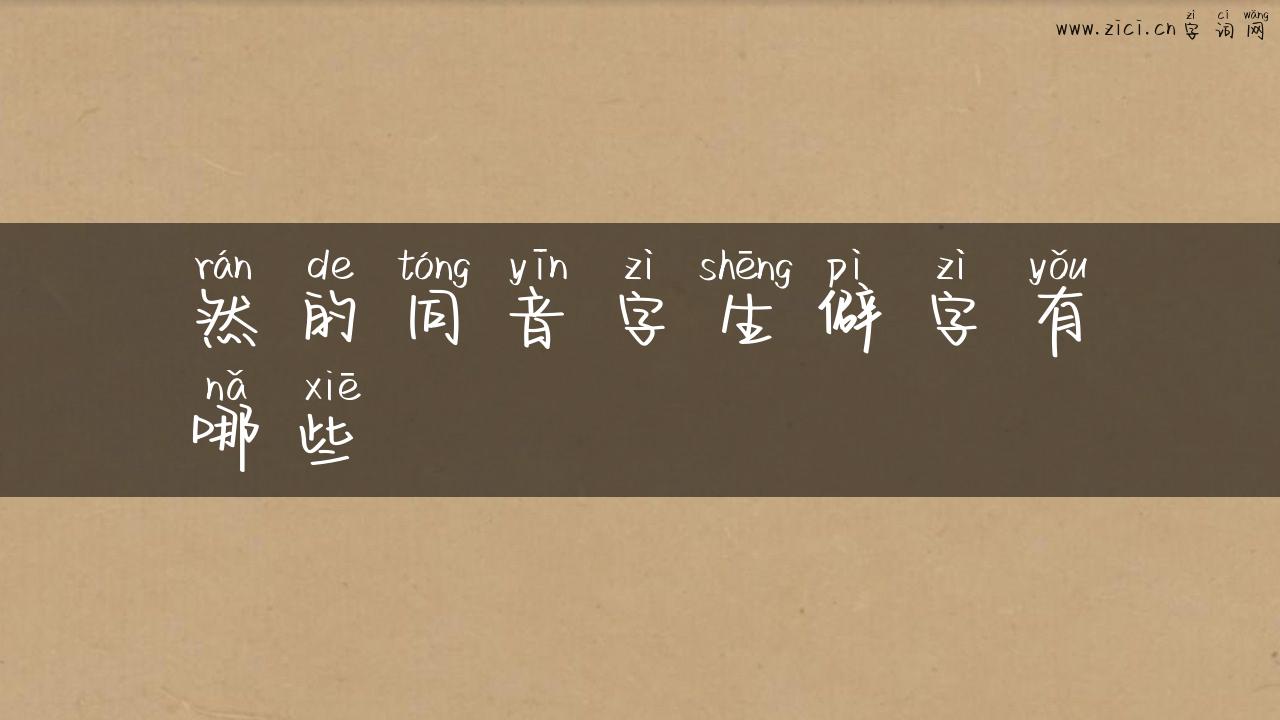 zì cí wǎng
www.zici.cn 字 词 网
rán de tóng yīn zì shēng pì zì yǒu
然 的 同 音 字 生 僻 字 有
nǎ xiē
哪 些